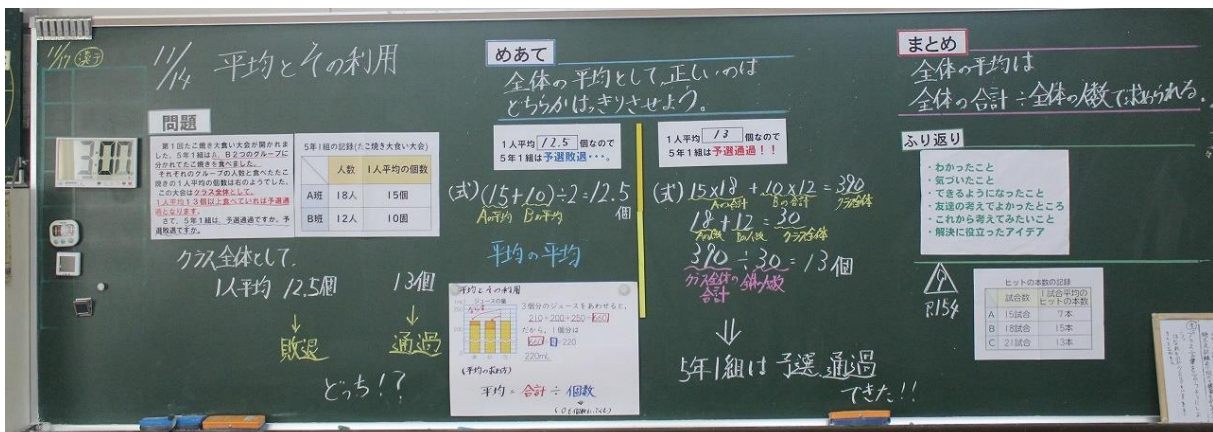 11/17 漢字
11/14 平均とその利用
3:00
問題
第1回たこ焼き大食い大会が開かれま
した。5年1組はA、B2つのグループに
分かれてたこ焼きを食べました。
それぞれのグループの人数と食べたたこ
焼きの1人平均の個数は右のようでした。
この大会はクラス全体として、
1人平均13個以上食べていれば予選通
過となります。
さて、5年1組は、予選通過ですか。予
選敗退ですか。
5年1組の記録(たこ焼き大食い大会)
人数 1人平均の個数
A班 18人 15個
B班 12人 10個
クラス全体として、
1人平均 12.5個 13個
↓ ↓
敗退 通過
どっち!?
めあて
全体の平均として、正しいのは
どちらかはっきりさせよう。
1人平均 12.5 個なので
5年1組は予選敗退・・・。
(式)(15+10)÷2=12.5
個
Aの平均 Bの平均
平均の平均
平均とその利用
ジュースの量
3個分のジュースをあわせると、
210+200+250=660
だから、1個分は
660÷3=220
220mL
(平均の求め方)
平均=合計÷個数
1人平均 13 個なので
5年1組は予選通過!!
(式)15×18+10×12=390
Aの合計 Bの合計 クラス全体
18+12=30
Aの人数 Bの人数 クラス全体
390÷30=13個
クラス全体の 全体の人数
合計
⇓
5年1組は予選通過
できた!!
まとめ
全体の平均は
全体の合計÷全体の人数で求められる。
ふり返り
・わかったこと
・気づいたこと
・できるようになったこと
・友達の考えでよかったところ
・これから考えてみたいこと
・解決に役立ったアイデア
P.154
ヒットの本数の記録
試合数 1試合平均の
ヒットの本数
A 15試合 7本
B 18試合 15本
C 21試合 13本